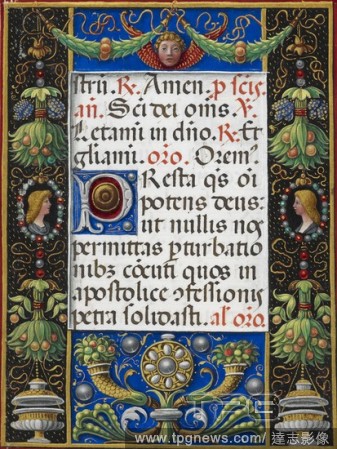 strū. R. Amen. p scis
añ. Sci dei oms V.
Letami in dño. R. Et
gliami. oro. Orem.
PResta qs oī
potens deus:
ut nullis nos
permittas pturbatio
nibz cōcuti quos in
apostolice ɔfessionis
petra solidasti. al oro.
www.tpgnews.com/ 達志影像